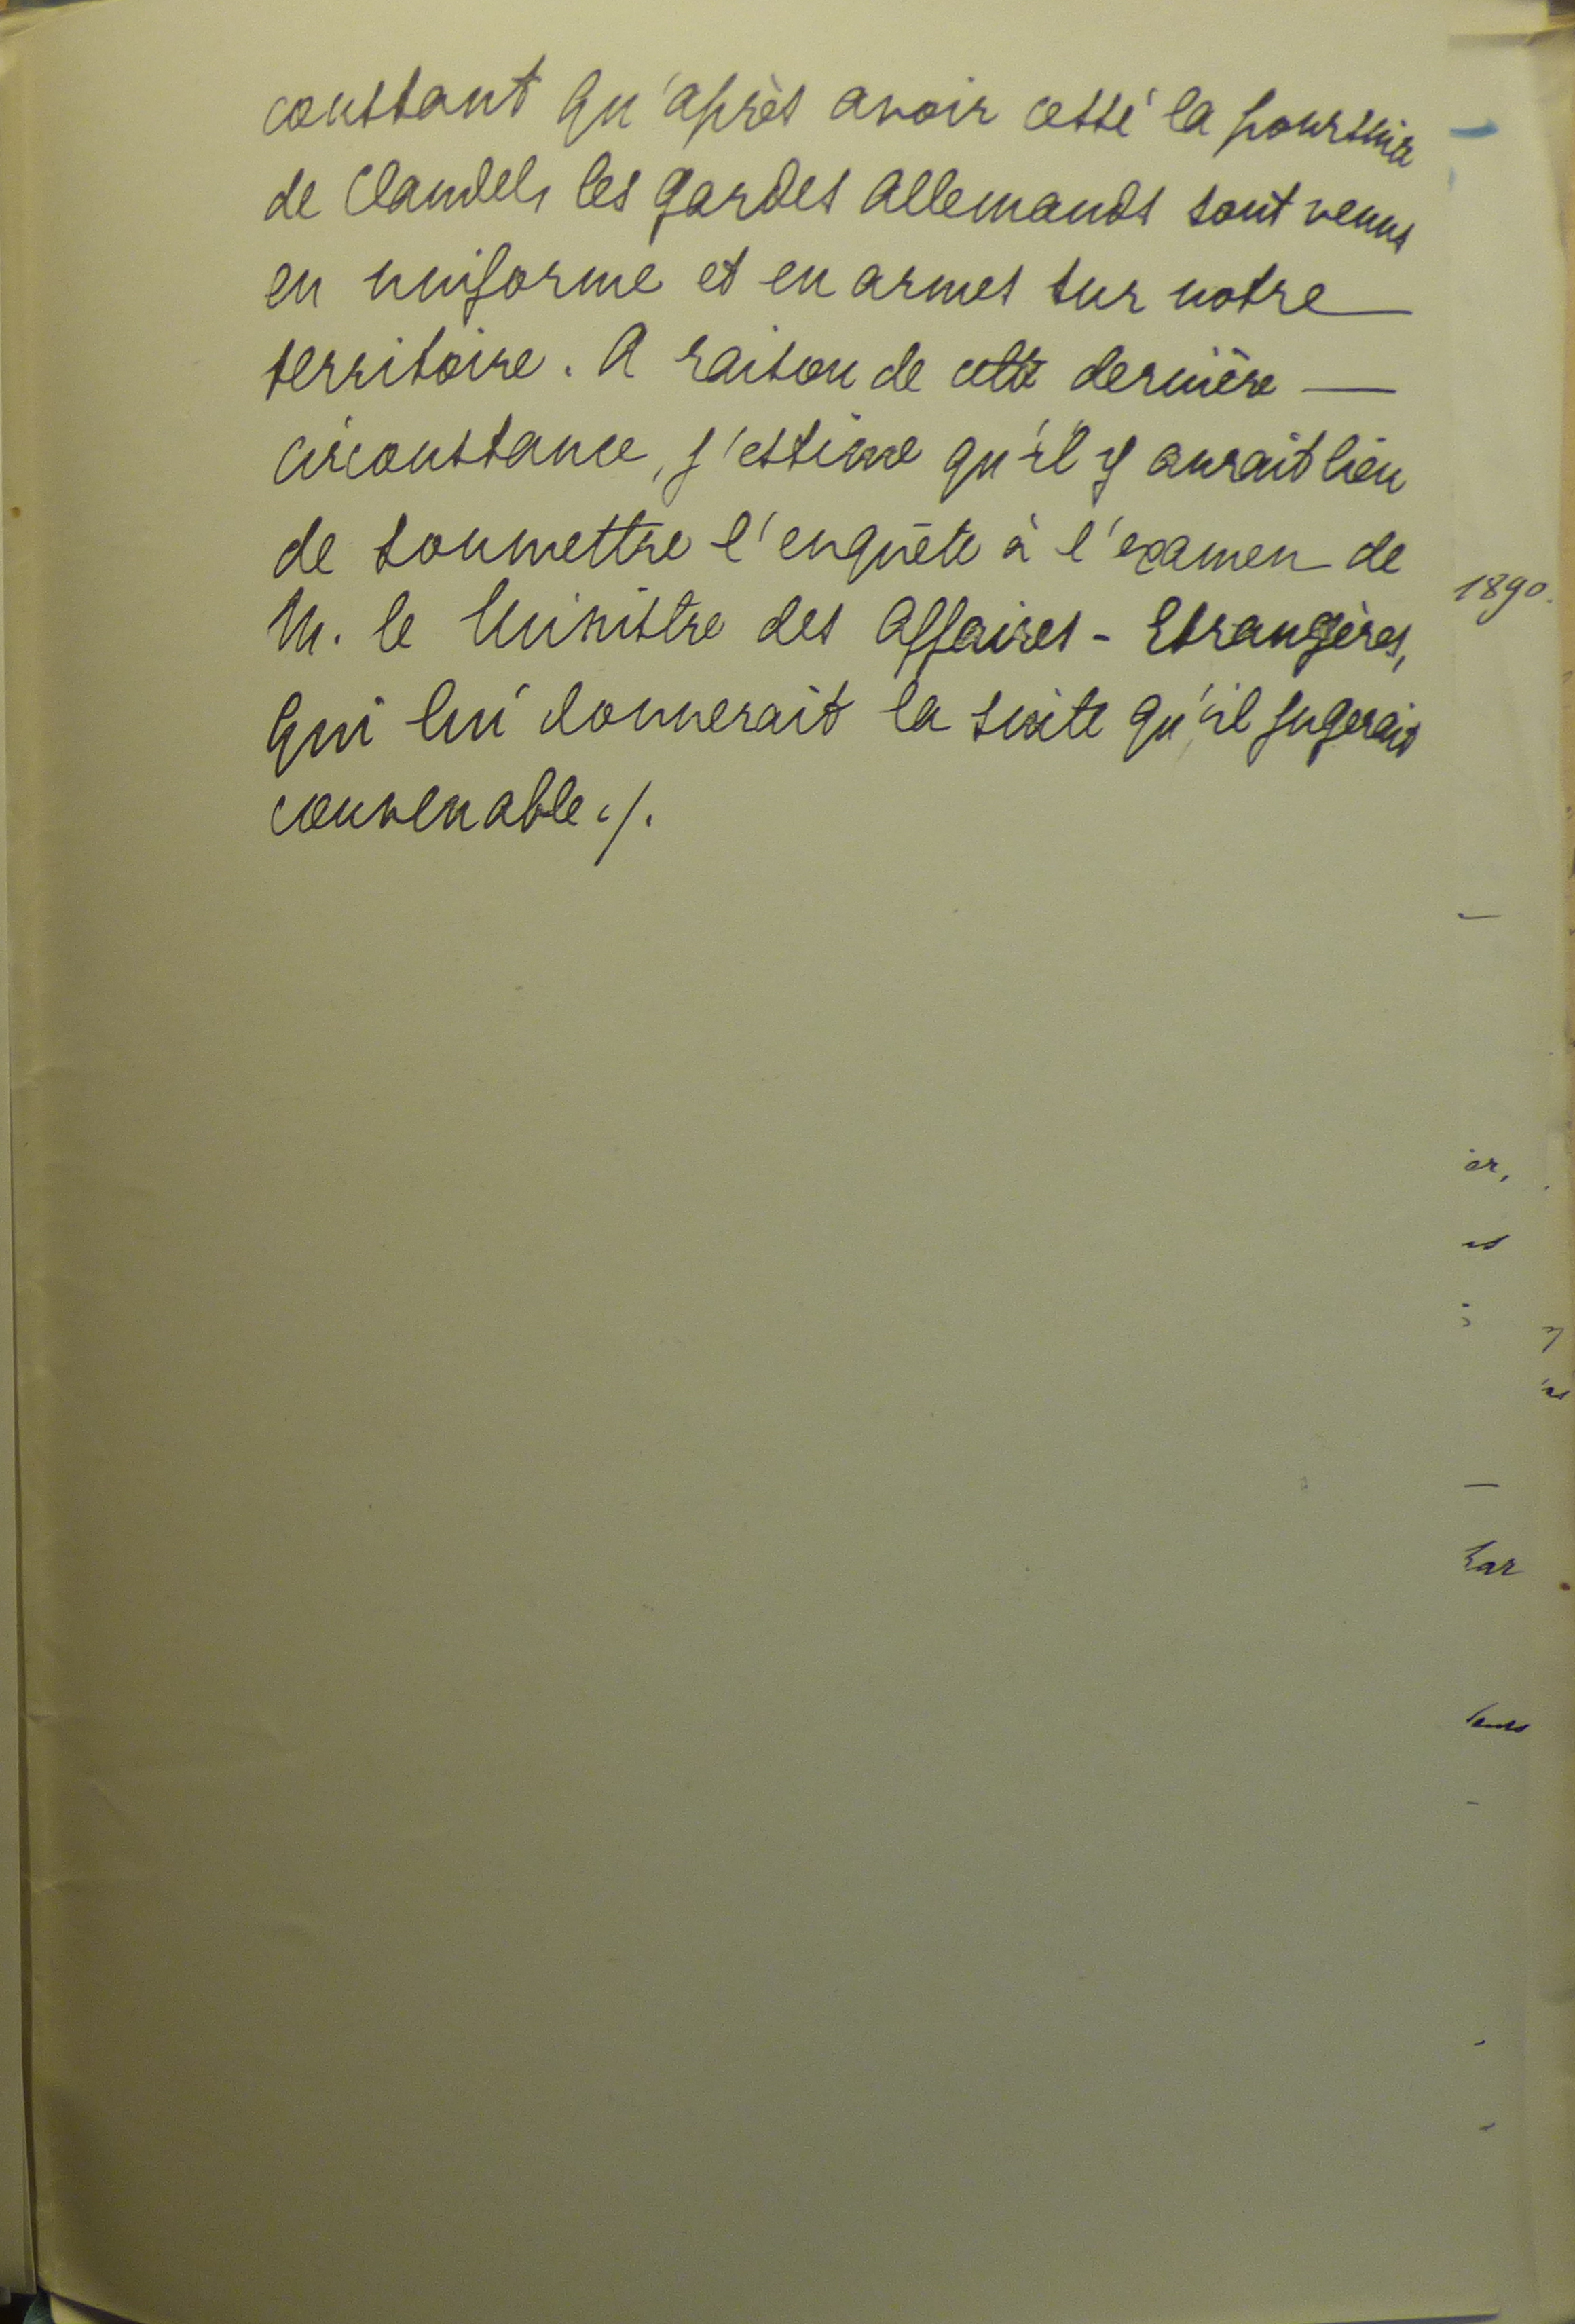 constant qu'après avoir cessé la poursuite
de Claudel, les gardes allemands sont venus
en uniforme et en armes sur notre
territoire. A raison de cette dernière
circonstance, j'estime qu'il y aurait lieu
de soumettre l'enquête à l'examen de
M. le Ministre des Affaires-Etrangères,
qui lui donnerait la suite qu'il jugerait
convenable ./.
1890.
er,
et
par